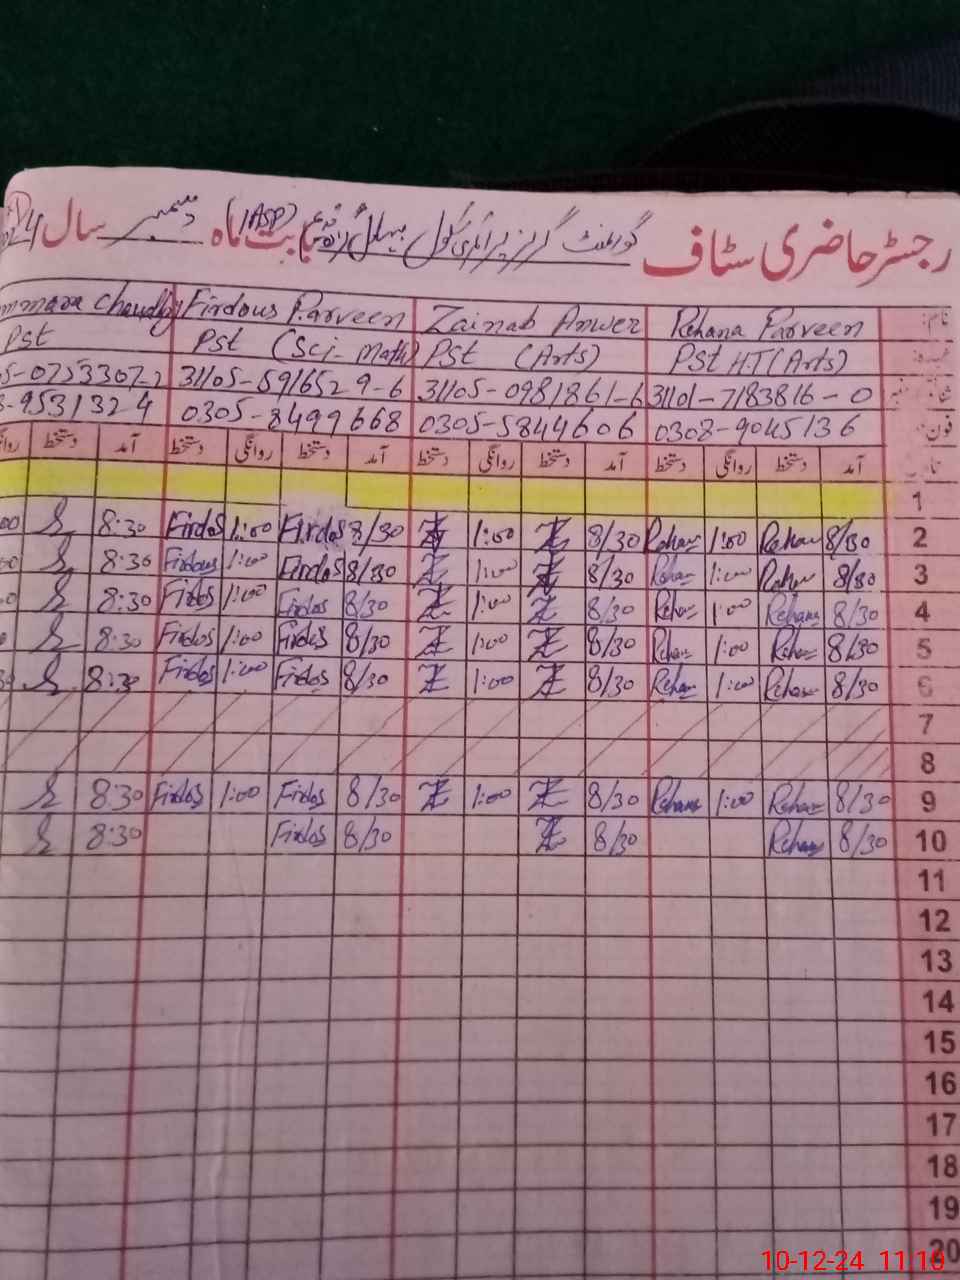 رجسٹر حاضری سٹاف گورنمنٹ گرلز پرائمری سکول بابت ماہ دسمبر سال
(IASP)
Firdous Parveen Zainab Anwer Rehana Parveen نام:
Pst Pst (Sci-Math) Pst (Arts) Pst H.T (Arts)
31105-5916529-6 31105-0981861-6 31101-7183816-0
9531324 0305-8499668 0305-5844606 0308-9045136 فون نمبر
دستخط آمد دستخط روانگی دستخط آمد دستخط روانگی دستخط آمد دستخط روانگی دستخط آمد
1
8:30 Firdos 1:00 Firdos 8/30 Z 1:00 Z 8/30 Rehana 1:00 Rehana 8/30 2
8:30 Firdous 1:00 Firdos 8/30 Z 1:00 Z 8/30 Rehana 1:00 Rehana 8/30 3
8:30 Firdos 1:00 Firdos 8/30 Z 1:00 Z 8/30 Rehana 1:00 Rehana 8/30 4
8:30 Firdos 1:00 Firdos 8/30 Z 1:00 Z 8/30 Rehana 1:00 Rehana 8/30 5
8:30 Firdos 1:00 Firdos 8/30 Z 1:00 Z 8/30 Rehana 1:00 Rehana 8/30 6
7
8
8:30 Firdos 1:00 Firdos 8/30 Z 1:00 Z 8/30 Rehana 1:00 Rehana 8/30 9
8:30 Firdos 8/30 Z 8/30 Rehana 8/30 10
11
12
13
14
15
16
17
18
19
20
10-12-24 11:10